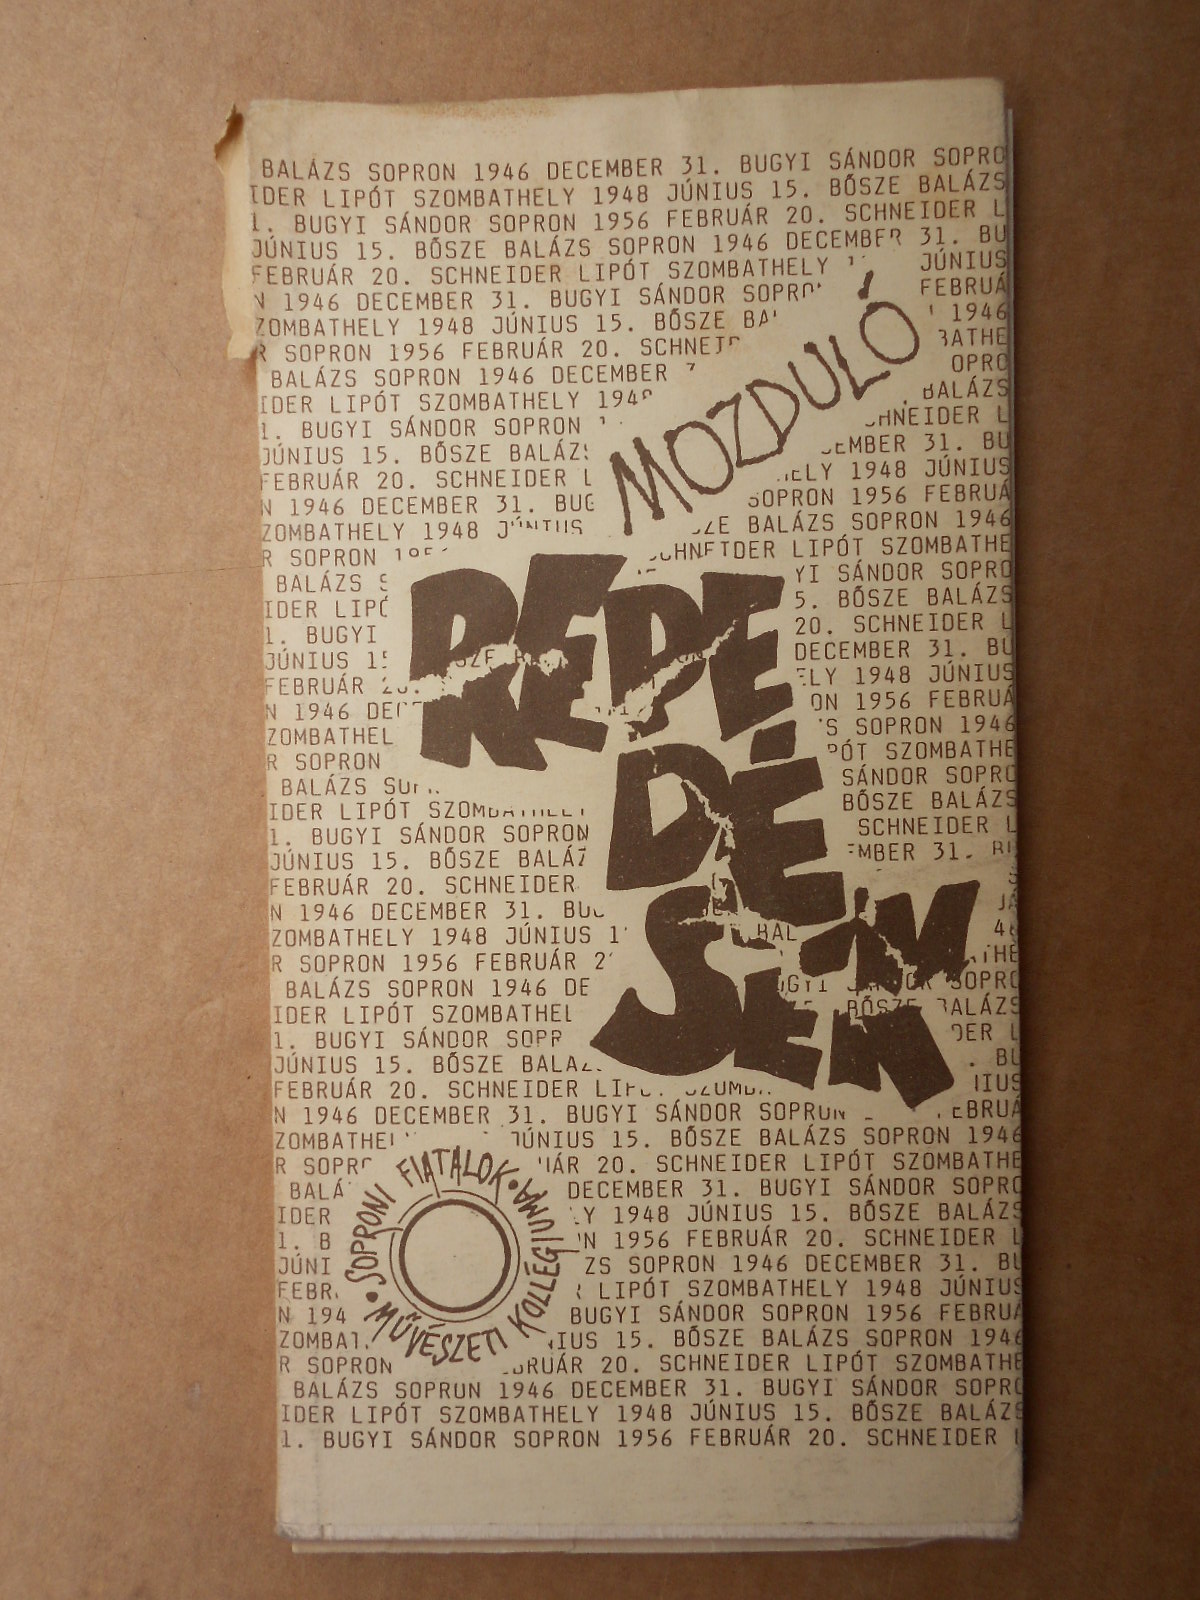 BALÁZS SOPRON 1946 DECEMBER 31. BUGYI SÁNDOR SOPRO
IDER LIPÓT SZOMBATHELY 1948 JÚNIUS 15. BŐSZE BALÁZS
1. BUGYI SÁNDOR SOPRON 1956 FEBRUÁR 20. SCHNEIDER L
JÚNIUS 15. BŐSZE BALÁZS SOPRON 1946 DECEMBER 31. BU
FEBRUÁR 20. SCHNEIDER LIPÓT SZOMBATHELY JÚNIUS
N 1946 DECEMBER 31. BUGYI SÁNDOR SOPRO FEBRUÁ
ZOMBATHELY 1948 JÚNIUS 15. BŐSZE BA 1946
R SOPRON 1956 FEBRUÁR 20. SCHNEI BATHE
BALÁZS SOPRON 1946 DECEMBER OPRO
IDER LIPÓT SZOMBATHELY 194 BALÁZS
1. BUGYI SÁNDOR SOPRON HNEIDER L
JÚNIUS 15. BŐSZE BALÁZ EMBER 31. BU
FEBRUÁR 20. SCHNEIDER L ELY 1948 JÚNIUS
N 1946 DECEMBER 31. BUG SOPRON 1956 FEBRUÁ
ZOMBATHELY 1948 JÚNIUS ZE BALÁZS SOPRON 1946
R SOPRON 195 CHNEIDER LIPÓT SZOMBATHE
BALÁZS S YI SÁNDOR SOPRO
IDER LIPÓ 5. BŐSZE BALÁZS
1. BUGYI 20. SCHNEIDER L
JÚNIUS 15 DECEMBER 31. BU
FEBRUÁR 20. ELY 1948 JÚNIUS
N 1946 DEC ON 1956 FEBRUÁ
ZOMBATHEL S SOPRON 1946
R SOPRON PÓT SZOMBATHE
BALÁZS SOP SÁNDOR SOPRO
IDER LIPÓT SZOMBATHELY BŐSZE BALÁZS
1. BUGYI SÁNDOR SOPRON SCHNEIDER L
JÚNIUS 15. BŐSZE BALÁZ EMBER 31. BU
FEBRUÁR 20. SCHNEIDER
N 1946 DECEMBER 31. BU
ZOMBATHELY 1948 JÚNIUS 1 BAL
R SOPRON 1956 FEBRUÁR 2
BALÁZS SOPRON 1946 DE UGYI SÁNDOR SOPRO
IDER LIPÓT SZOMBATHEL BŐSZE BALÁZS
1. BUGYI SÁNDOR SOPR DER L
JÚNIUS 15. BŐSZE BALÁZ . BU
FEBRUÁR 20. SCHNEIDER LIPÓT SZOMB NIUS
N 1946 DECEMBER 31. BUGYI SÁNDOR SOPRON EBRUÁ
ZOMBATHEL JÚNIUS 15. BŐSZE BALÁZS SOPRON 1946
R SOPR UÁR 20. SCHNEIDER LIPÓT SZOMBATHE
BALÁ DECEMBER 31. BUGYI SÁNDOR SOPRO
IDER LY 1948 JÚNIUS 15. BŐSZE BALÁZS
1. B N 1956 FEBRUÁR 20. SCHNEIDER L
JÚNI ZS SOPRON 1946 DECEMBER 31. BU
FEBR LIPÓT SZOMBATHELY 1948 JÚNIUS
N 194 BUGYI SÁNDOR SOPRON 1956 FEBRUÁ
ZOMBAT NIUS 15. BŐSZE BALÁZS SOPRON 1946
R SOPRON BRUÁR 20. SCHNEIDER LIPÓT SZOMBATHE
BALÁZS SOPRON 1946 DECEMBER 31. BUGYI SÁNDOR SOPRO
IDER LIPÓT SZOMBATHELY 1948 JÚNIUS 15. BŐSZE BALÁZS
1. BUGYI SÁNDOR SOPRON 1956 FEBRUÁR 20. SCHNEIDER L
MOZDULÓ
REPE
DÉ
SEK
SOPRONI FIATALOK • MŰVÉSZETI KOLLÉGIUMA •